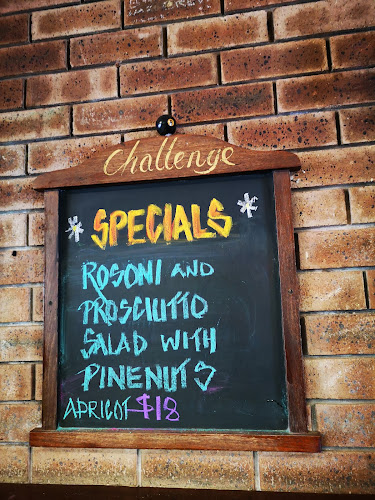 Challenge
SPECIALS
ROSONI AND
PROSCIUTTO
SALAD WITH
PINENUTS
APRICOT $18